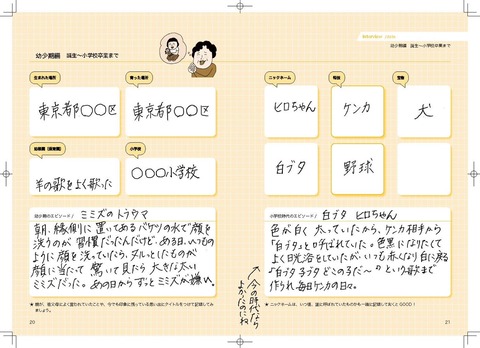 幼少期編 誕生～小学校卒業まで
幼少期編 誕生～小学校卒業まで
生まれた場所
育った場所
東京都〇〇区
東京都〇〇区
幼稚園(保育園)
小学校
羊の歌をよく歌った
〇〇〇小学校
幼少期のエピソード♪ ミミズのトラウマ
朝、縁側に置いてあるバケツの水で顔を
洗うのが習慣だったんだけど、ある日、いつもの
ように顔を洗っていたら、ヌルッとしたものが
顔に当たって驚いて見たら大きな太い
ミミズだった。あの日からずっとミミズが嫌い。
20
ニックネーム
特技
宝物
ヒロちゃん
ケンカ
犬
白ブタ
野球
小学校時代のエピソード♪ 白ブタ ヒロちゃん
色が白く太っていたから、ケンカ相手から
「白ブタ」と呼ばれていた。色黒になりたくて
よく日光浴をしていたが、いつも赤くなり白に戻る
「白ブタ子ブタどこの子だ～」という歌まで
作られ毎日ケンカの日々。
★ ニックネームは、いつ頃、誰に呼ばれていたものかも一緒に記録しておくとGOOD!
21
今の時代なら
よかったのにね